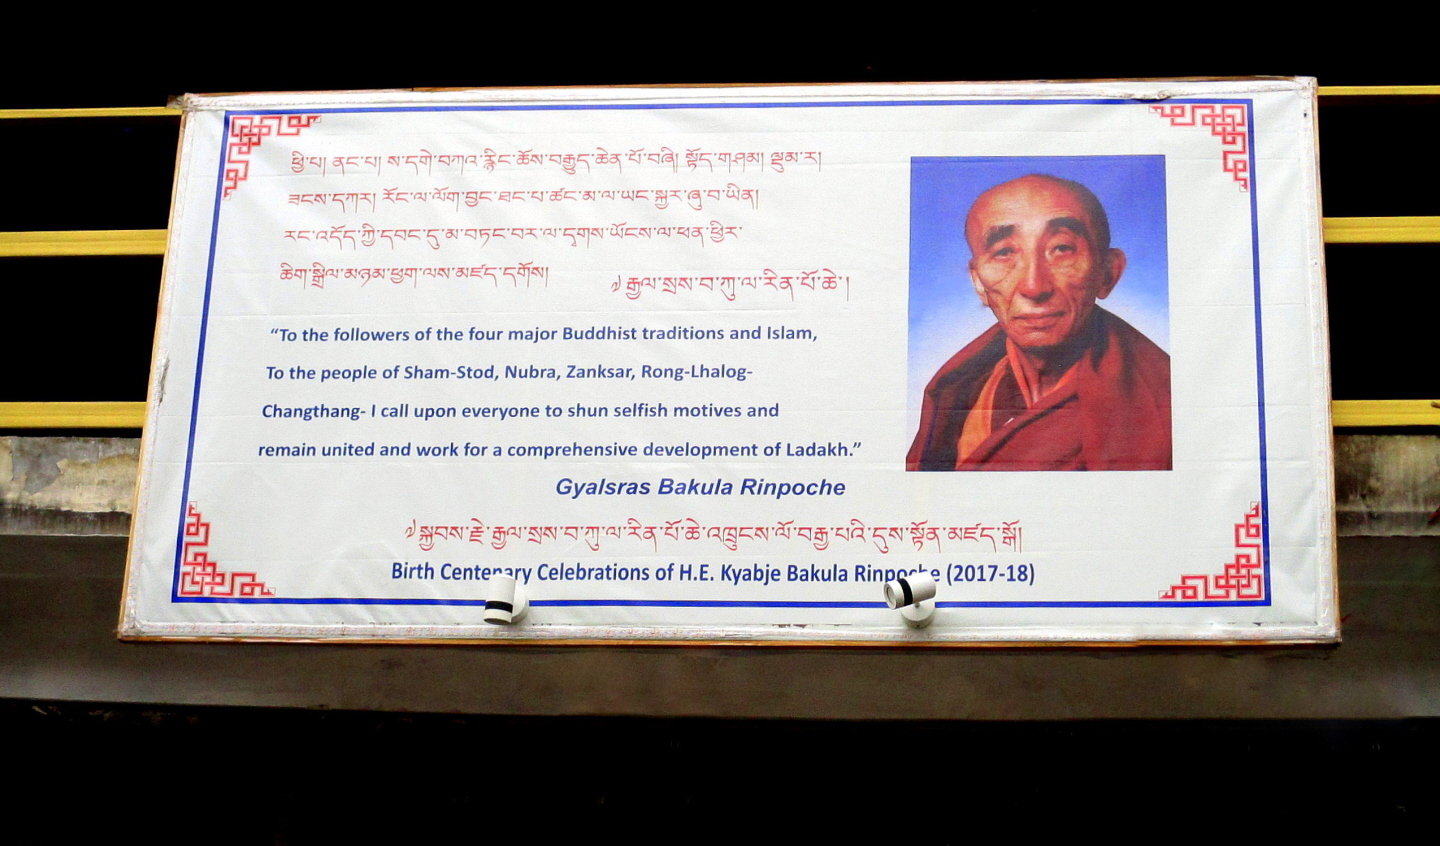 ཕྱི་པ། ནང་པ། ས་དགེ་བཀའ་རྙིང་ཆོས་བརྒྱུད་ཆེན་པོ་བཞི། སྟོད་གཤམ། ལྡུམ་ར།
ཟངས་དཀར། རོང་ལ་ལོག་བྱང་ཐང་པ་ཚང་མ་ལ་ཡང་སྐྱར་ཞུ་བ་ཡིན།
རང་འདོད་ཀྱི་དབང་དུ་མ་བཏང་བར་ལ་དྭགས་ཡོངས་ལ་ཕན་ཕྱིར་
ཆིག་སྒྲིལ་མཉམ་ཕྱག་ལས་མཛད་དགོས།
༡རྒྱལ་སྲས་བ་ཀུ་ལ་རིན་པོ་ཆེ་།
“To the followers of the four major Buddhist traditions and Islam,
To the people of Sham-Stod, Nubra, Zanksar, Rong-Lhalog-
Changthang- I call upon everyone to shun selfish motives and
remain united and work for a comprehensive development of Ladakh.”
Gyalsras Bakula Rinpoche
༡སྐྱབས་རྗེ་རྒྱལ་སྲས་བ་ཀུ་ལ་རིན་པོ་ཆེ་འཁྲུངས་ལོ་བརྒྱ་པའི་དུས་སྟོན་མཛད་སྒོ།
Birth Centenary Celebrations of H.E. Kyabje Bakula Rinpoche (2017-18)